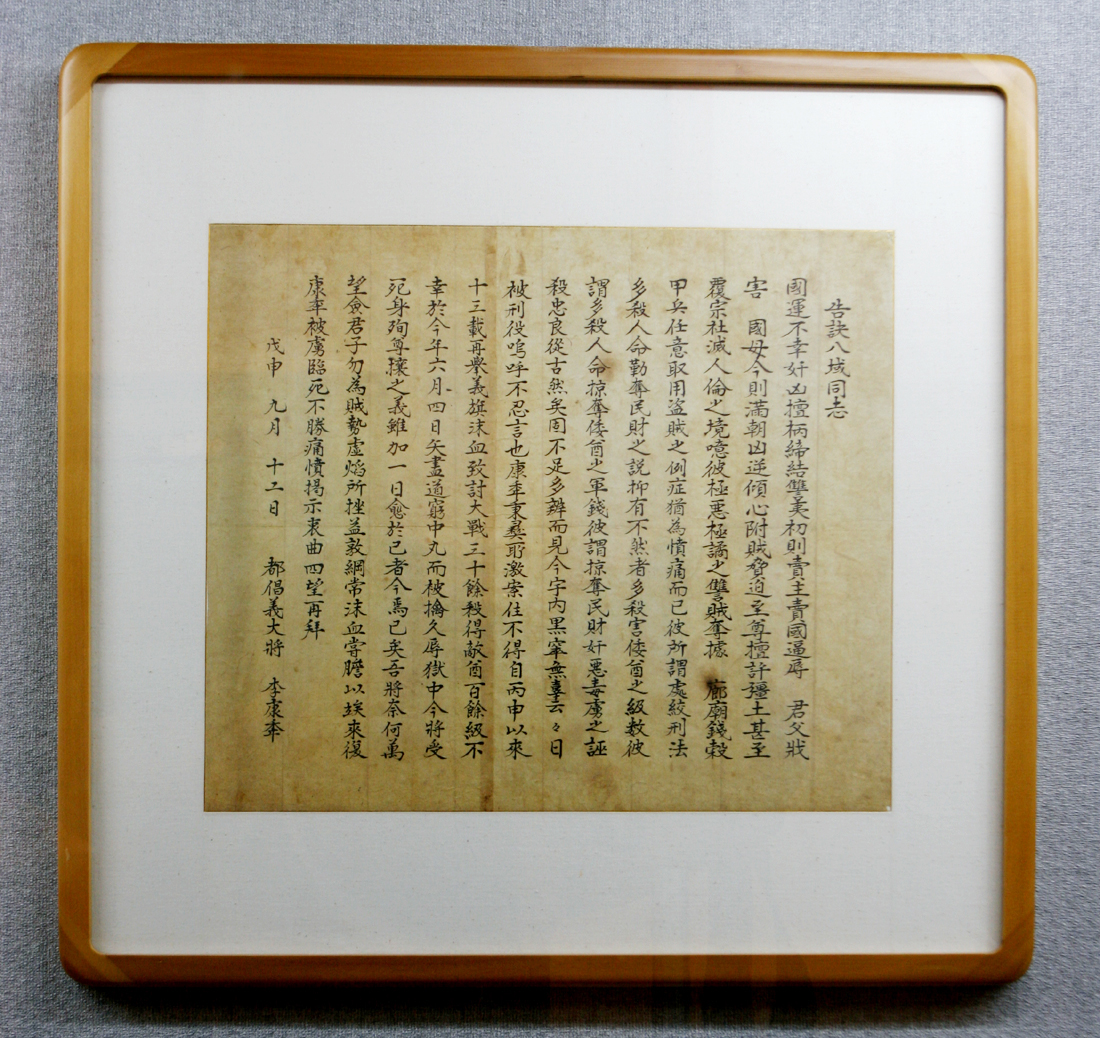 告訣八域同志
國運不幸奸凶擅柄締結讐夷初則賣主賣國逼辱 君父戕
害 國母今則滿朝凶逆傾心附賊脅迫至尊擅許彊土甚至
覆宗社滅人倫之境噫彼極惡極譎之讐賊奪據 廊廟錢穀
甲兵任意取用盜賊之例症猶為憤痛而已彼所謂處絞刑法
多殺人命勤奪民財之説抑有不然者多殺害倭酋之級数彼
謂多殺人命掠奪倭酋之軍錢彼謂掠奪民財奸惡毒虜之誣
殺忠良從古然矣固不足多辨而見今宇内黒窣無臺云々日
被刑役嗚呼不忍言也康秊秉彛耶激案住不得自丙申以來
十三載再擧義旗沫血致討大戰三十餘殺得敵酋百餘級不
幸於今年六月四日矢盡道窮中丸而被擒久辱獄中今將受
死身殉尊攘之義雖加一日愈於已者今焉已矣吾將奈何萬
望僉君子勿為賊勢虛焰所挫益敦綱常沫血嘗膽以俟來復
康秊被虜臨死不勝痛憤揭示衷曲四望再拜
戊申 九月 十二日 都倡義大將 李康秊